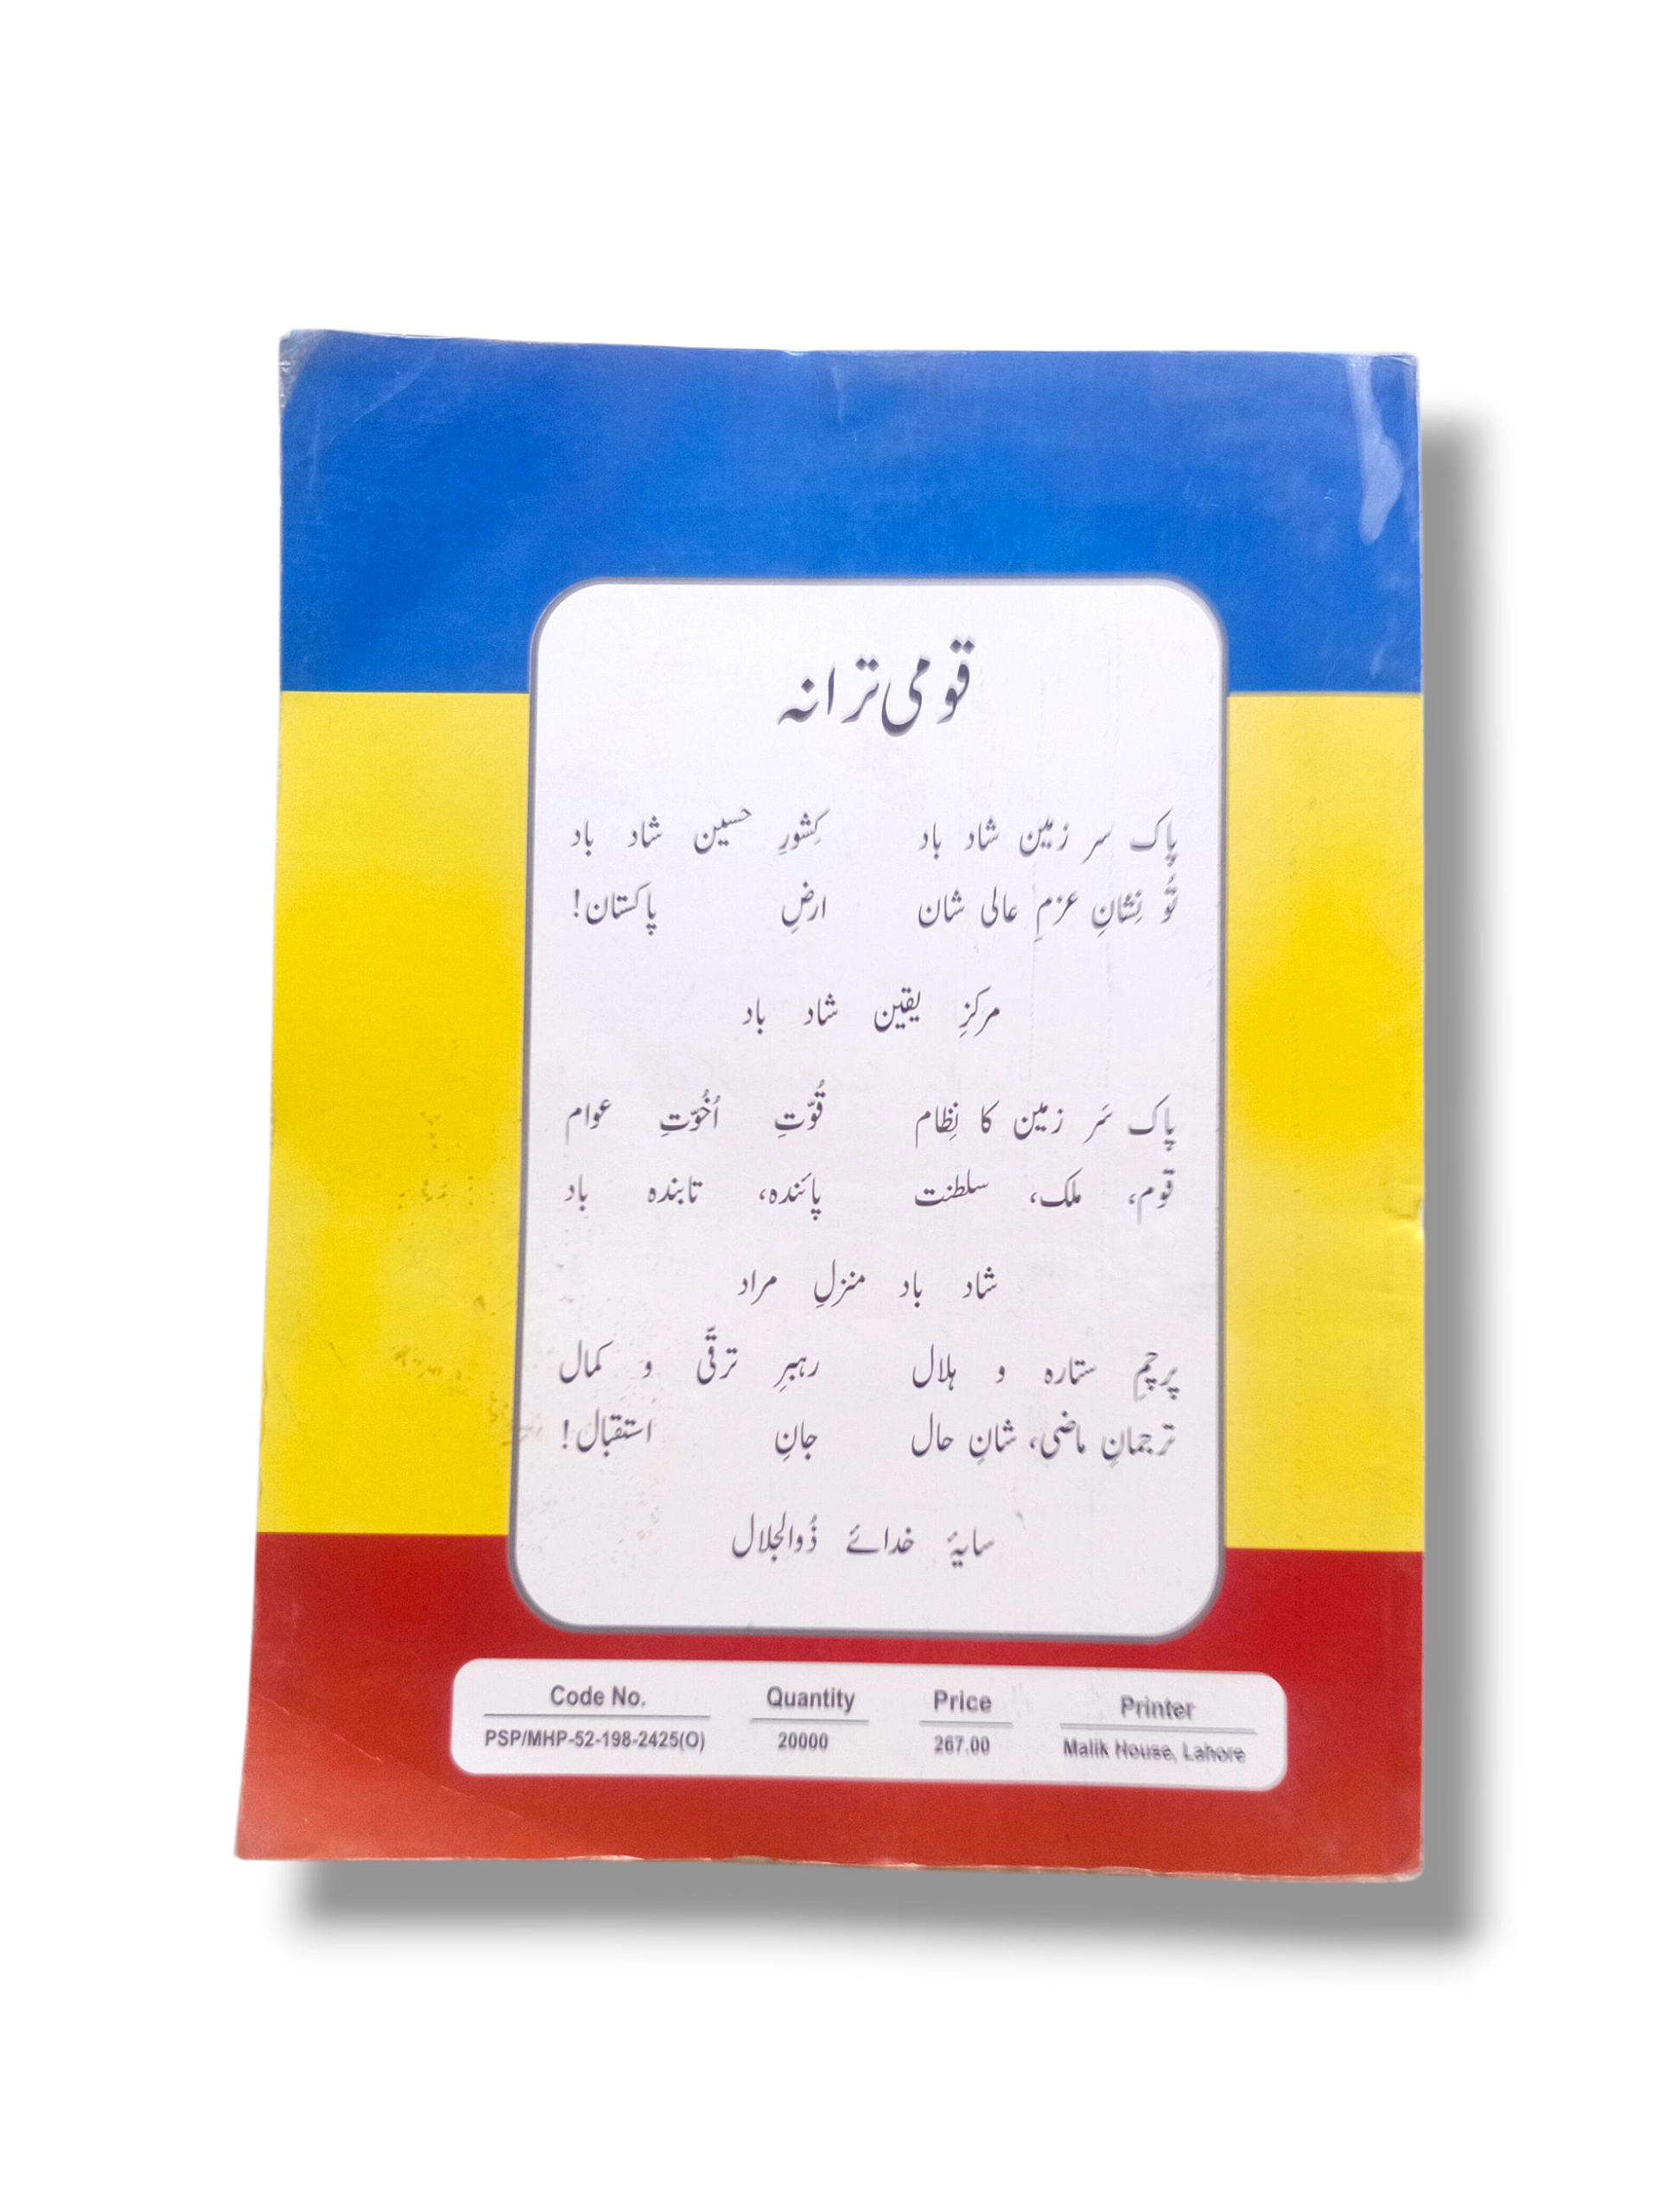 قومی ترانہ
پاک سر زمین شاد باد کِشورِ حسین شاد باد
تُو نِشانِ عزمِ عالی شان ارضِ پاکستان!
مرکزِ یقین شاد باد
پاک سَر زمین کا نِظام قُوّتِ اُخُوّتِ عوام
قوم، ملک، سلطنت پائندہ، تابندہ باد
شاد باد منزلِ مراد
پرچمِ ستارہ و ہلال رہبرِ ترقّی و کمال
ترجمانِ ماضی، شانِ حال جانِ استقبال!
سایۂ خدائے ذُوالجلال
Code No. Quantity Price Printer
PSP/MHP-52-198-2425(O) 20000 267.00 Malik House, Lahore